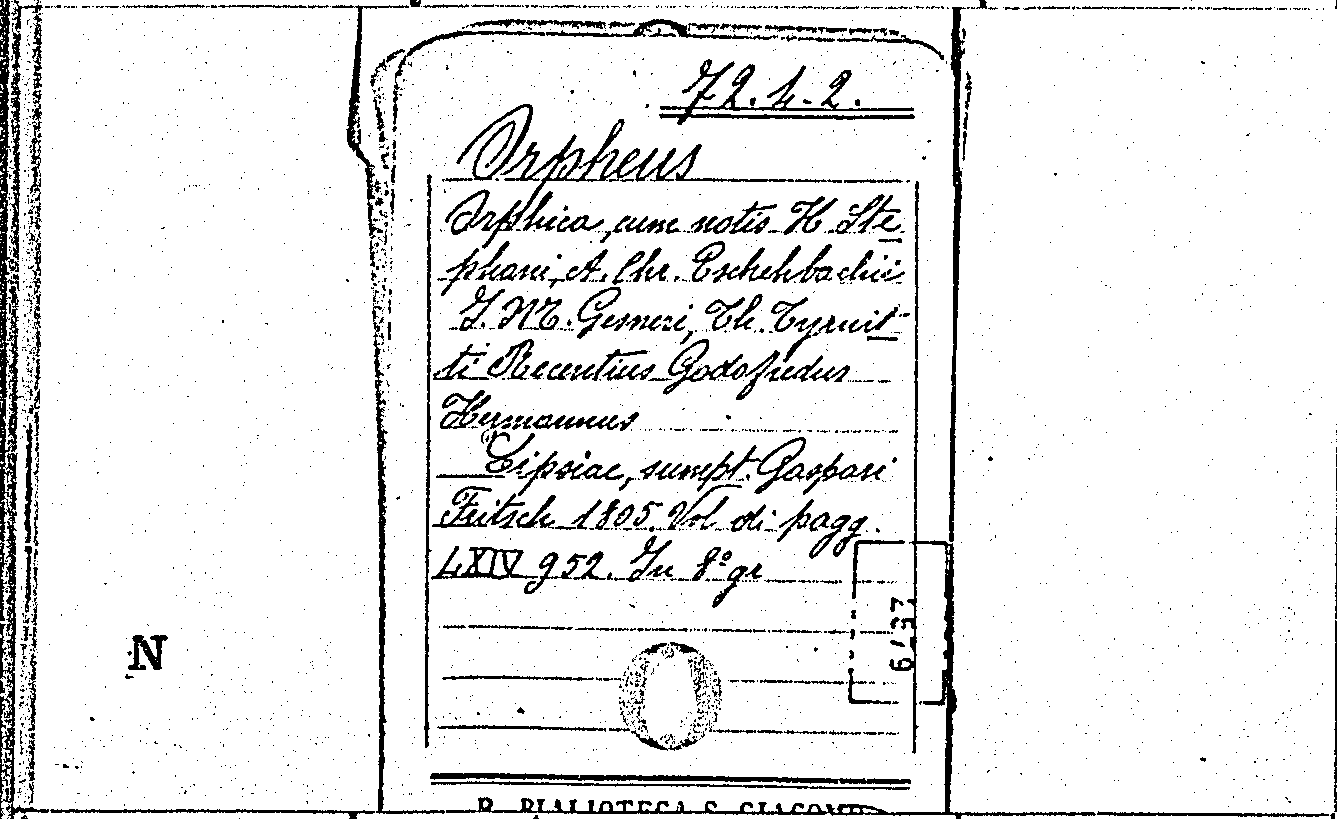 72.4.2.
Orpheus
Orphica, cum notis H Ste
phani, A. Chr. Eschehbachii
J. M. Gesneri, Th. Tyrwit-
ti Recentius Godofredus
Hermannus
Lipsiae, sumpt. Gaspari
Fritsch 1805. Vol di pagg.
LXIV 952. In 8° gr
6437
N
R. BIBLIOTECA S. GIACOMO